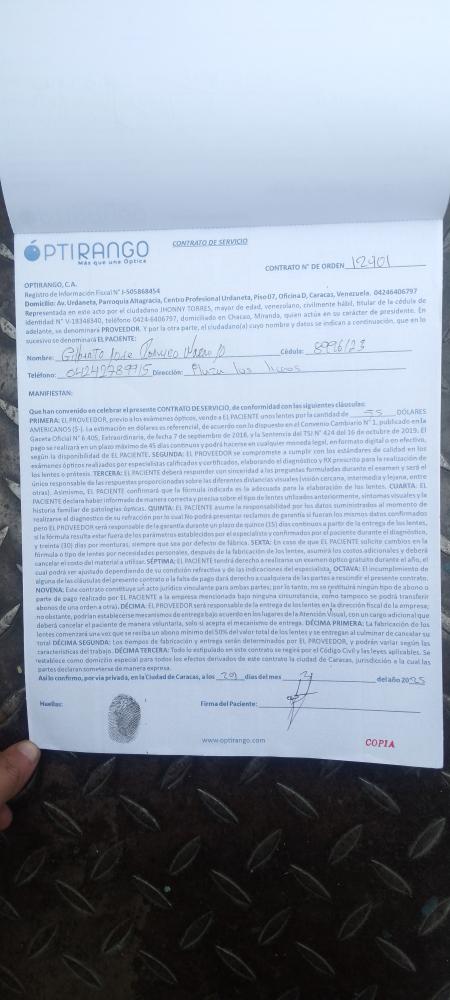 ÓPTIRANGO
Más que una Óptica
CONTRATO DE SERVICIO
CONTRATO N° DE ORDEN 12901
OPTIRANGO, C.A.
Registro de Información Fiscal N° J-505868454
Domicilio: Av. Urdaneta, Parroquia Altagracia, Centro Profesional Urdaneta, Piso 07, Oficina D, Caracas, Venezuela. 04246406797
Representada en este acto por el ciudadano JHONNY TORRES, mayor de edad, venezolano, civilmente hábil, titular de la cédula de
Identidad N° V-18348340, teléfono 0424-6406797, domiciliado en Chacao, Miranda, quien actúa en su carácter de presidente. En
adelante, se denominará PROVEEDOR. Y por la otra parte, el ciudadano(a) cuyo nombre y datos se indican a continuación, que en lo
sucesivo se denominará EL PACIENTE:
Nombre: Gilberto Cédula: 8996123
Teléfono: 04242789915 Dirección: Plaza las
MANIFIESTAN:
Que han convenido en celebrar el presente CONTRATO DE SERVICIO, de conformidad con las siguientes cláusulas:
PRIMERA: EL PROVEEDOR, previo a los exámenes ópticos, vende a EL PACIENTE unos lentes por la cantidad de 55 DÓLARES
AMERICANOS ($-). La estimación en dólares es referencial, de acuerdo con lo dispuesto en el Convenio Cambiario N° 1, publicado en la
Gaceta Oficial N° 6.405, Extraordinaria, de fecha 7 de septiembre de 2018, y la Sentencia del TSJ N° 424 del 16 de octubre de 2019. El
pago se realizará en un plazo máximo de 45 días continuos y podrá hacerse en cualquier moneda legal, en formato digital o en efectivo,
según la disponibilidad de EL PACIENTE. SEGUNDA: EL PROVEEDOR se compromete a cumplir con los estándares de calidad en los
exámenes ópticos realizados por especialistas calificados y certificados, elaborando el diagnóstico y RX prescrito para la realización de
los lentes o prótesis. TERCERA: EL PACIENTE deberá responder con sinceridad a las preguntas formuladas durante el examen y será el
único responsable de las respuestas proporcionadas sobre las diferentes distancias visuales (visión cercana, intermedia y lejana, entre
otras). Asimismo, EL PACIENTE confirmará que la fórmula indicada es la adecuada para la elaboración de los lentes. CUARTA: EL
PACIENTE declara haber informado de manera correcta y precisa sobre el tipo de lentes utilizados anteriormente, síntomas visuales y la
historia familiar de patologías ópticas. QUINTA: EL PACIENTE asume la responsabilidad por los datos suministrados al momento de
realizarse el diagnostico de su refracción por lo cual No podrá presentar reclamos de garantía si fueran los mismos datos confirmados
pero EL PROVEEDOR será responsable de la garantía durante un plazo de quince (15) días continuos a partir de la entrega de los lentes,
si la fórmula resulta estar fuera de los parámetros establecidos por el especialista y confirmados por el paciente durante el diagnóstico,
y treinta (30) días por monturas, siempre que sea por defecto de fábrica. SEXTA: En caso de que EL PACIENTE solicite cambios en la
fórmula o tipo de lentes por necesidades personales, después de la fabricación de los lentes, asumirá los costos adicionales y deberá
cancelar el costo del material a utilizar. SÉPTIMA: EL PACIENTE tendrá derecho a realizarse un examen óptico gratuito durante el año, el
cual podrá ser ajustado dependiendo de su condición refractiva y de las indicaciones del especialista. OCTAVA: El incumplimiento de
alguna de las cláusulas del presente contrato o la falta de pago dará derecho a cualquiera de las partes a rescindir el presente contrato.
NOVENA: Este contrato constituye un acto jurídico vinculante para ambas partes; por lo tanto, no se restituirá ningún tipo de abono o
parte de pago realizado por EL PACIENTE a la empresa mencionada bajo ninguna circunstancia, como tampoco se podrá transferir
abonos de una orden a otra). DÉCIMA: EL PROVEEDOR será responsable de la entrega de los lentes en la dirección fiscal de la empresa;
no obstante, podrían establecerse mecanismos de entrega bajo acuerdo en los lugares de la Atención Visual, con un cargo adicional que
deberá cancelar el paciente de manera voluntaria, solo si acepta el mecanismo de entrega. DÉCIMA PRIMERA: La fabricación de los
lentes comenzará una vez que se reciba un abono mínimo del 50% del valor total de los lentes y se entregan al culminar de cancelar su
total. DÉCIMA SEGUNDA: Los tiempos de fabricación y entrega serán determinados por EL PROVEEDOR, y podrán variar según las
características del trabajo. DÉCIMA TERCERA: Todo lo estipulado en este contrato se regirá por el Código Civil y las leyes aplicables. Se
restablece como domicilio especial para todos los efectos derivados de este contrato la ciudad de Caracas, jurisdicción a la cual las
partes declaran someterse de manera expresa.
Así lo confirmo, por vía privada, en la Ciudad de Caracas, a los 29 días del mes del año 2025
Huellas: Firma del Paciente:
www.optirango.com
COPIA